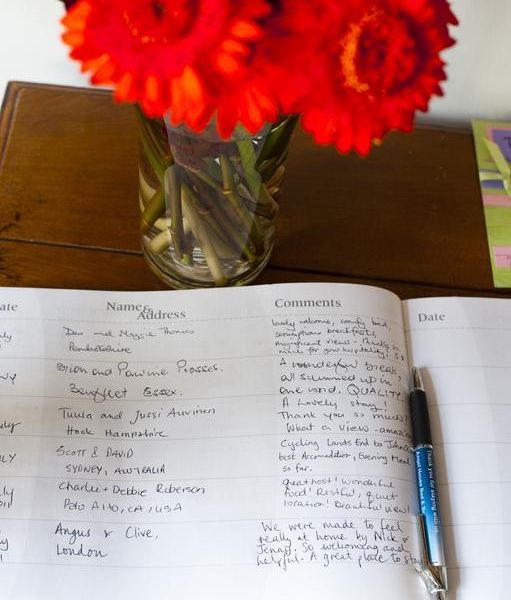 ate
Name &
Address
Comments
Date
Dev and Maggie Thomas
Pembrokeshire
lovely welcome, comfy bed,
scrumptious breakfasts,
magnificent views - thanks so
much for your hospitality!
Brian and Pauline Prosses.
Benfleet Essex.
A wonderful break,
all summed up in
one word. QUALITY.
uly
Tuula and Jussi Auvinen
Hook Hampshire
A Lovely stay!
Thank you so much!
What a view - amazing
LY
SCOTT & DAVID
SYDNEY, AUSTRALIA
Cycling Lands End to John
best Accomodation, Evening Meal
so far.
ly
Charlie + Debbie Roberson
Palo Alto, CA, USA
great host! Wonderful
food! Restful, quiet
location! Beautiful view!
Angus & Clive,
London
We were made to feel
really at home by Nick &
Jenny. So welcoming and
helpful. A great place to stay
Thank you for staying with us